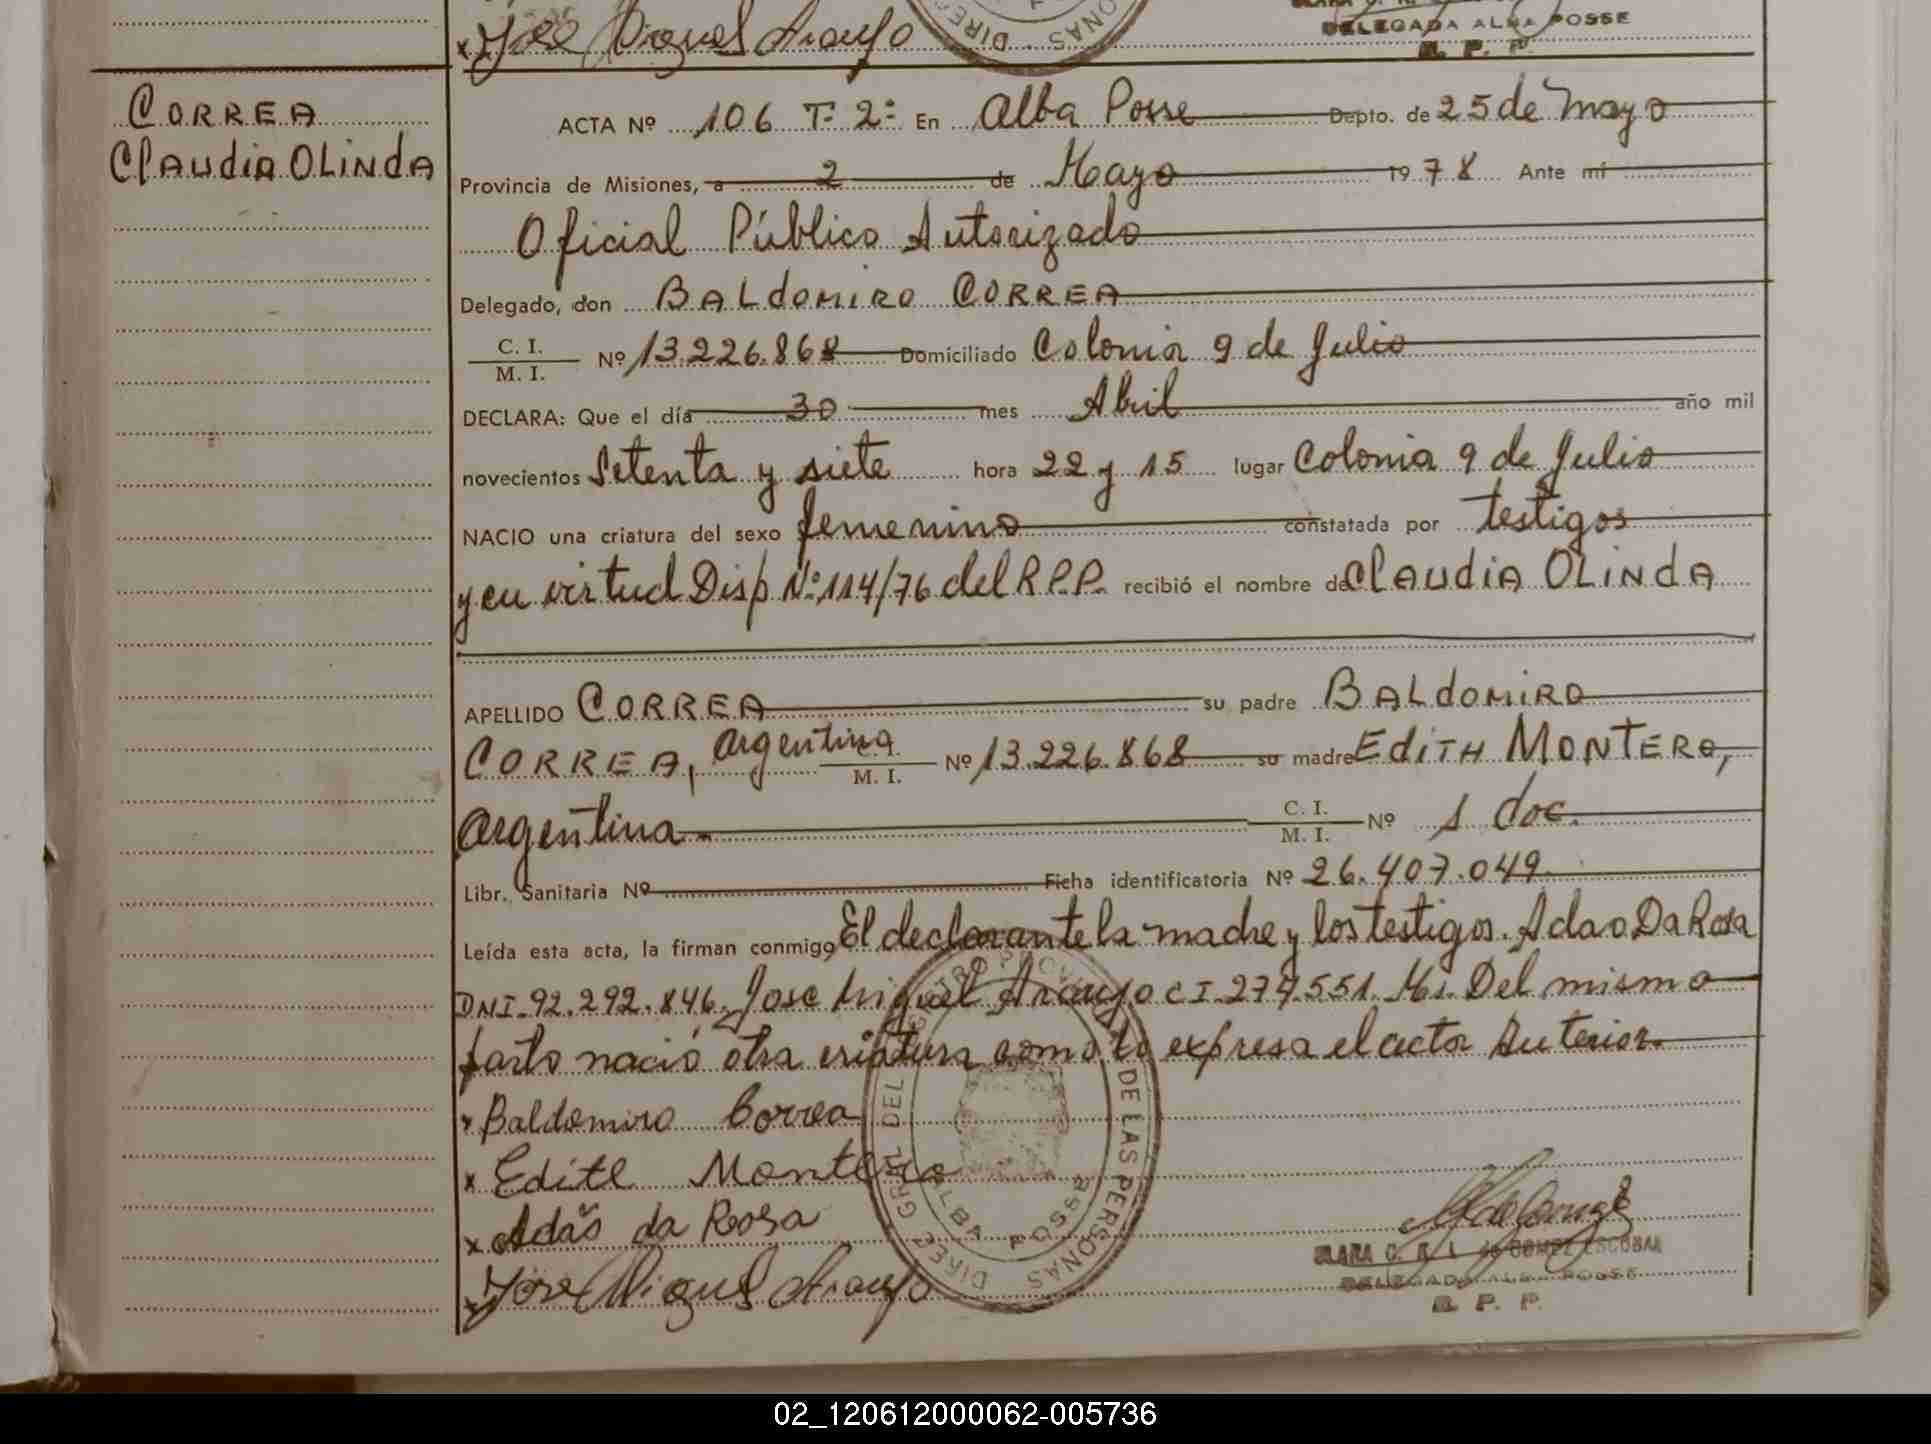 x José Miguel Araujo
DELEGADA ALBA POSSE
R. P. P.
CORREA
ClAUdiA OLiNdA
ACTA Nº 106 T. 2º En Alba Posse Depto. de 25 de Mayo
Provincia de Misiones, a 2 de Mayo 1978 Ante mí
Oficial Público Autorizado
Delegado, don BALdOMIRO CORREA
C. I.
M. I. Nº 13.226.868 Domiciliado Colonia 9 de Julio
DECLARA: Que el día 30 mes Abril año mil
novecientos Setenta y siete hora 22 y 15 lugar Colonia 9 de Julio
NACIO una criatura del sexo femenino constatada por testigos
y en virtud Disp. Nº 114/76 del R.P.P. recibió el nombre de ClAUdiA OLiNdA
APELLIDO CORREA su padre BALdOMIRO
CORREA, Argentina C. I. M. I. Nº 13.226.868 su madre EdiTH MONTERO,
Argentina C. I. M. I. Nº 1 doc.
Libr. Sanitaria Nº Ficha identificatoria Nº 26.407.049
Leída esta acta, la firman conmigo El declarante la madre y los testigos. Adao Da Rosa
DNI-92.292.846. Jose Miguel Araujo CI-277.551. Ms. Del mismo
parto nació otra criatura como lo expresa el acta Anterior.
x Baldomiro Correa
x Edite Montero
x Adão da Rosa
x José Miguel Araujo
DIREC. GRAL. DEL REGISTRO PROV. DE LAS PERSONAS
ALBA POSSE
CLARA C. R. L. de GOMEZ ESCOBAR
DELEGADA ALBA POSSE
R. P. P.
02_120612000062-005736